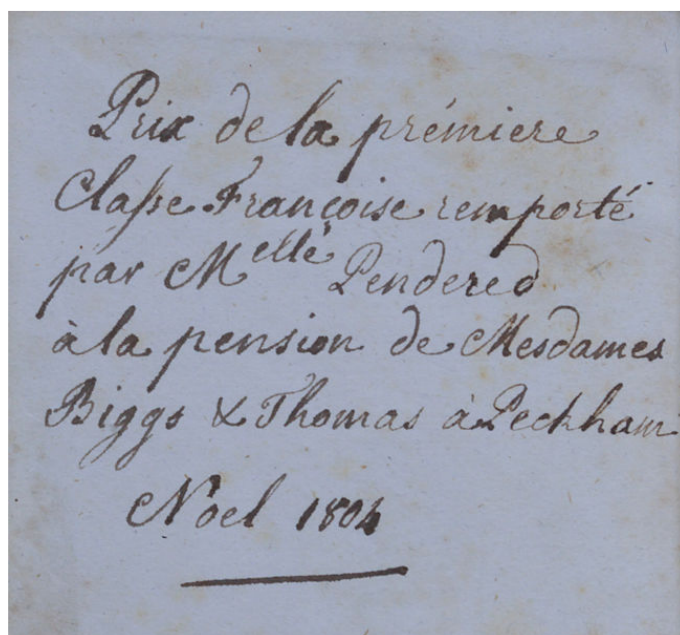 Prix de la prémiere
Classe Françoise remporté
par Melle Pendered
à la pension de Mesdames
Biggs & Thomas à Peckham
Noel 1804